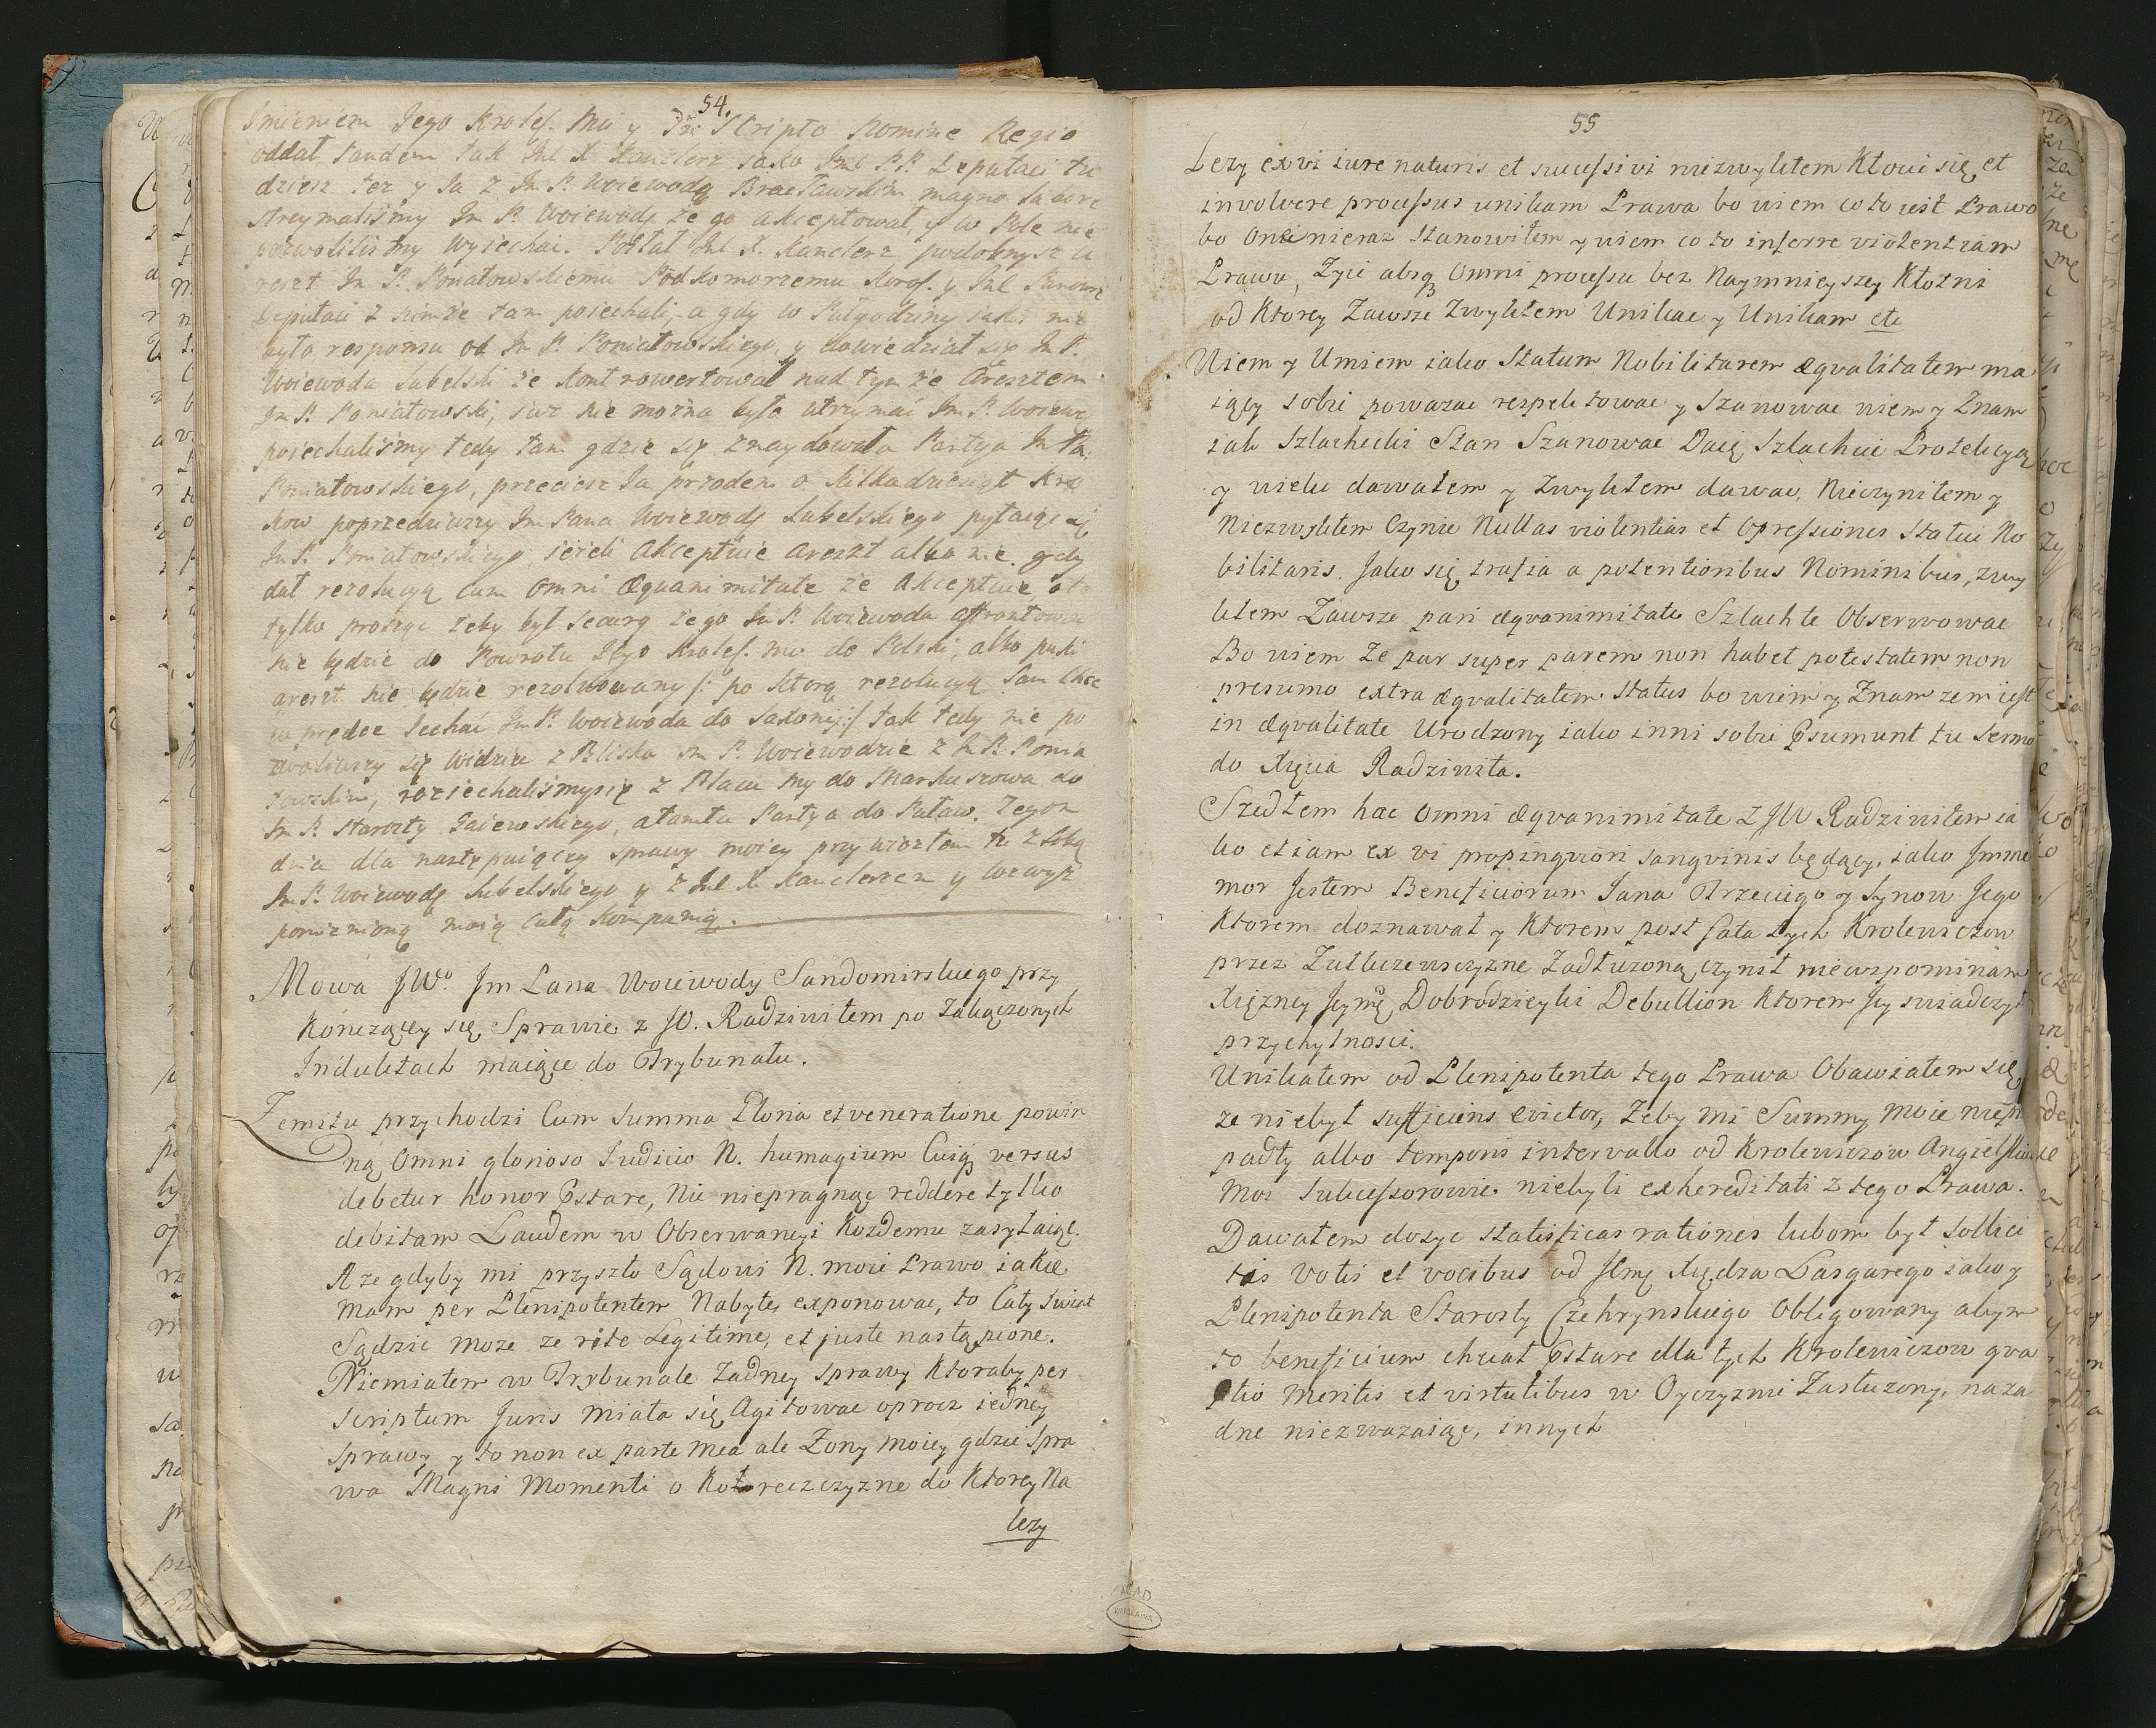 54.
Imieniem Jego Krolef. Mci y In Scripto Nomine Regio
oddał, tandem tak Jmć X Kanclerz jako Jmć P.P. Deputaci tu
dziesz też y Ja z Jm P. Woiewodą Bracławskim magno labore
strzymaliśmy Jm P. Woiewodę że go akceptował, y w Pole nie
pozwoliliśmy wyiechać. Posłał Jmć X. Kanclerz podobnysz a
reszt Jm P. Poniatowskiemu Podkomorzemu Korof. y Jmć Panowie
Deputaci z nimże tam poiechali, a gdy w Pułgodziny iaki nie
było responsu od Jm P. Poniatowskiego, y dowiedział się Jm P.
Woiewoda Lubelski że kontrowertował nad tym że Aresztem
Jm P. Poniatowski, iusz nie można było utrzymać Jm P. Woiewo
poiechaliśmy tedy tam gdzie się znaydowała Partya Jm Pa.
Poniatowskiego, przeciesz Ja przodem o kilkadziesiąt kro
kow poprzedziwszy Jm Pana Woiewodę Lubelskiego pytaiąc się
Jm P. Poniatowskiego, ieżeli Akceptuie areszt albo nie, gdy
dał rezolucyą cum omni Æquanimitate że Akceptuie oto
tylko proszę żeby był Securg że go Jm P. Woiewoda affrontować
nie będzie do Powrotu Jego Krolef. mci do Polski, albo puki
areszt nie będzie rezolwowany /: po ktorą rezolucyą sam chce
w prędce Iechać Jm P. Woiewoda do Saxonij :/ tak tedy nie po
zwoliwszy się widzieć z Bliska Jm P. Woiewodzie z Jm P. Ponia
towskim, roziechaliśmysię z Placu my do Markuszowa do
Jm P. Starosty Gaiewskiego, a tamta Partya do Puław. Tegoż
dnia dla następuiącey sprawy moiey przywiozłem tu z sobą
Jm P. Woiewodę Lubelskiego y z Jmć X. Kanclerzem y wzwysz
pomienioną moią całą kompanią.
Mowa JWo. Jm Pana Woiewody Sandomirskiego przy
kończącey się Sprawie z JO. Radziwiłem po Zakączonych
Induktach maiące do Trybunału.
Zemitu przychodzi Cum Summa Gloria et veneratione powin
ną omni glorioso Iudicio N. humagium Cuiq versus
debetur honor Pstare, Nic niepragnąc reddere tylko
debitam Laudem w Obserwancyi Kozdemu zasyłaiąc.
A ze gdyby mi przyszło Sądowi N. moie Prawo iakie
mam per Plenipotentem Nabyte, exponować, to Cały świat
Sądzić moze ze rite Legitime, et juste nastąpione.
Niemiałem w Trybunale Zadney sprawy ktoraby per
scriptum Juris miała się Agitować oprocz iedney
sprawy y to non ex parte mea ale Zony moiey gdzie spra
wa Magni Momenti o Kotoreczczyzne do Ktorey Na
lezy
55
Lezy ex vi iure naturis et succefsivi niezwykłem kłocić się, et
involvere procefsus unikam Prawa bo wiem co to iest Prawo
bo One nieraz stanowiłem y wiem co to inferre violentiam
Prawu, Zyie absq omni procefsu bez Naymnieyszey kłotni
od Ktorey Zawsze Zwykłem Unikać y Unikam etc
Wiem y Umiem iako Statum Nobilitarem æqvalitatem ma
iący sobie powazać respektować y szanować wiem y Znam
iak Szlachecki Stan Szanować Daię, Szlachcie Protekcyą
y wielu dawałem y Zwykłem dawać, Nieczyniłem y
Niezwykłem Czynić Nullas violentias et Oprefsiones Statui No
bilitaris. Jako się trafia a potentioribus Nominibus, zwy
kłem Zawsze pari æqvanimitate Szlachte Obserwować
Bo wiem Ze par super parem non habet potestatem non
presumo extra æqvalitatem status bo wiem y Znam zem iest
in æqvalitate Urodzony iako inni sobie Psumunt tu sermo
do Xięcia Radziwiła.
Szedłem hac omni æqvanimitate Z JW Radziwiłem ia
ko etiam ex vi propinqviori sangvinis będący, iako Imme
mor Jestem Beneficiorum Jana Trzeciego y Synow Jego
Ktorem doznawał y Ktorem post fata tych Krolewiczow
przez Zułkiewszczyzne Zadłuzoną czynił niewspominam
Xięzney Jeymę Dobrodzieyki Debullion Ktorem Jey swiadczył
przychylności.
Unikałem od Plenipotenta tego Prawa Obawiałem się,
ze niebył sufficiens evictor, Zeby mi Summy moie nieprze
padły albo temporis intervallo od Krolewiczow Angielskich
moi sukcefsorowie niebyli exhereditati z tego Prawa.
Dawałem dosyc statisticas rationes lubom był sollici
tas votis et vocibus od Jmę Xiędza Lasgarego iako y
Plenipotenta Starosty Czehrynskiego Obligowany abym
to beneficium chciał Pstare dla tych Krolewiczow qva
tio meritis et virtutibus w Oyczyznie Zasłuzony, na za
dne niezwazaiąc, innych